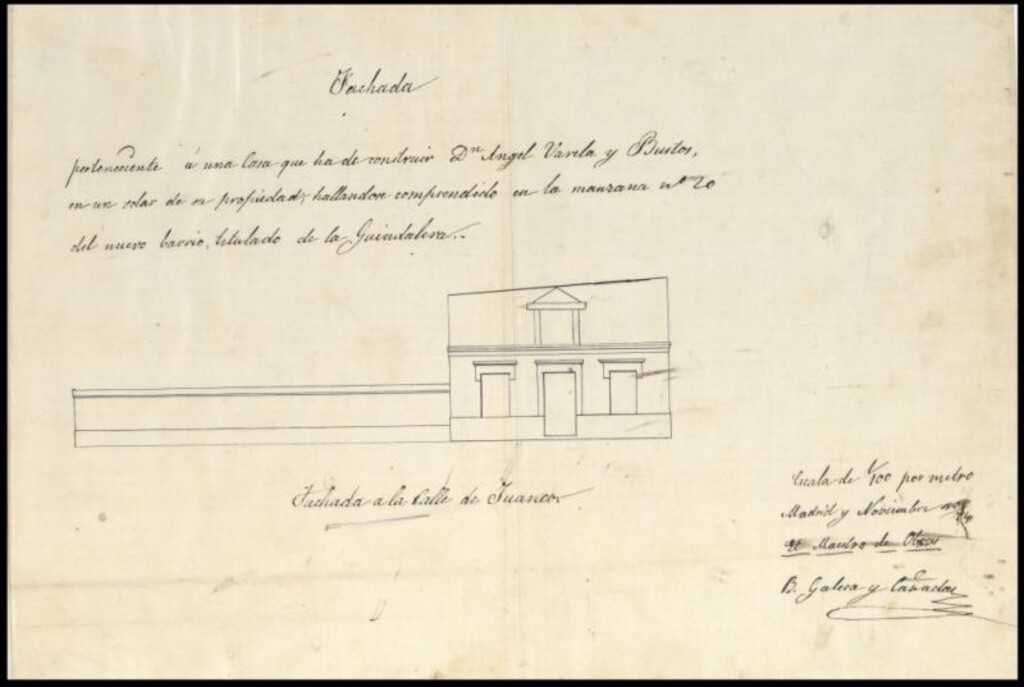 Fachada
perteneciente á una Casa que ha de construir Dn Angel Varela y Bustos,
en un solar de su propiedad; hallandose comprendido en la manzana nº 20
del nuevo barrio, titulado de la Guindalera..
Fachada a la Calle de Juanco.
Escala de 1/100 por metro
Madrid y Noviembre
El Maestro de Obras
B. Galera y Cañadas